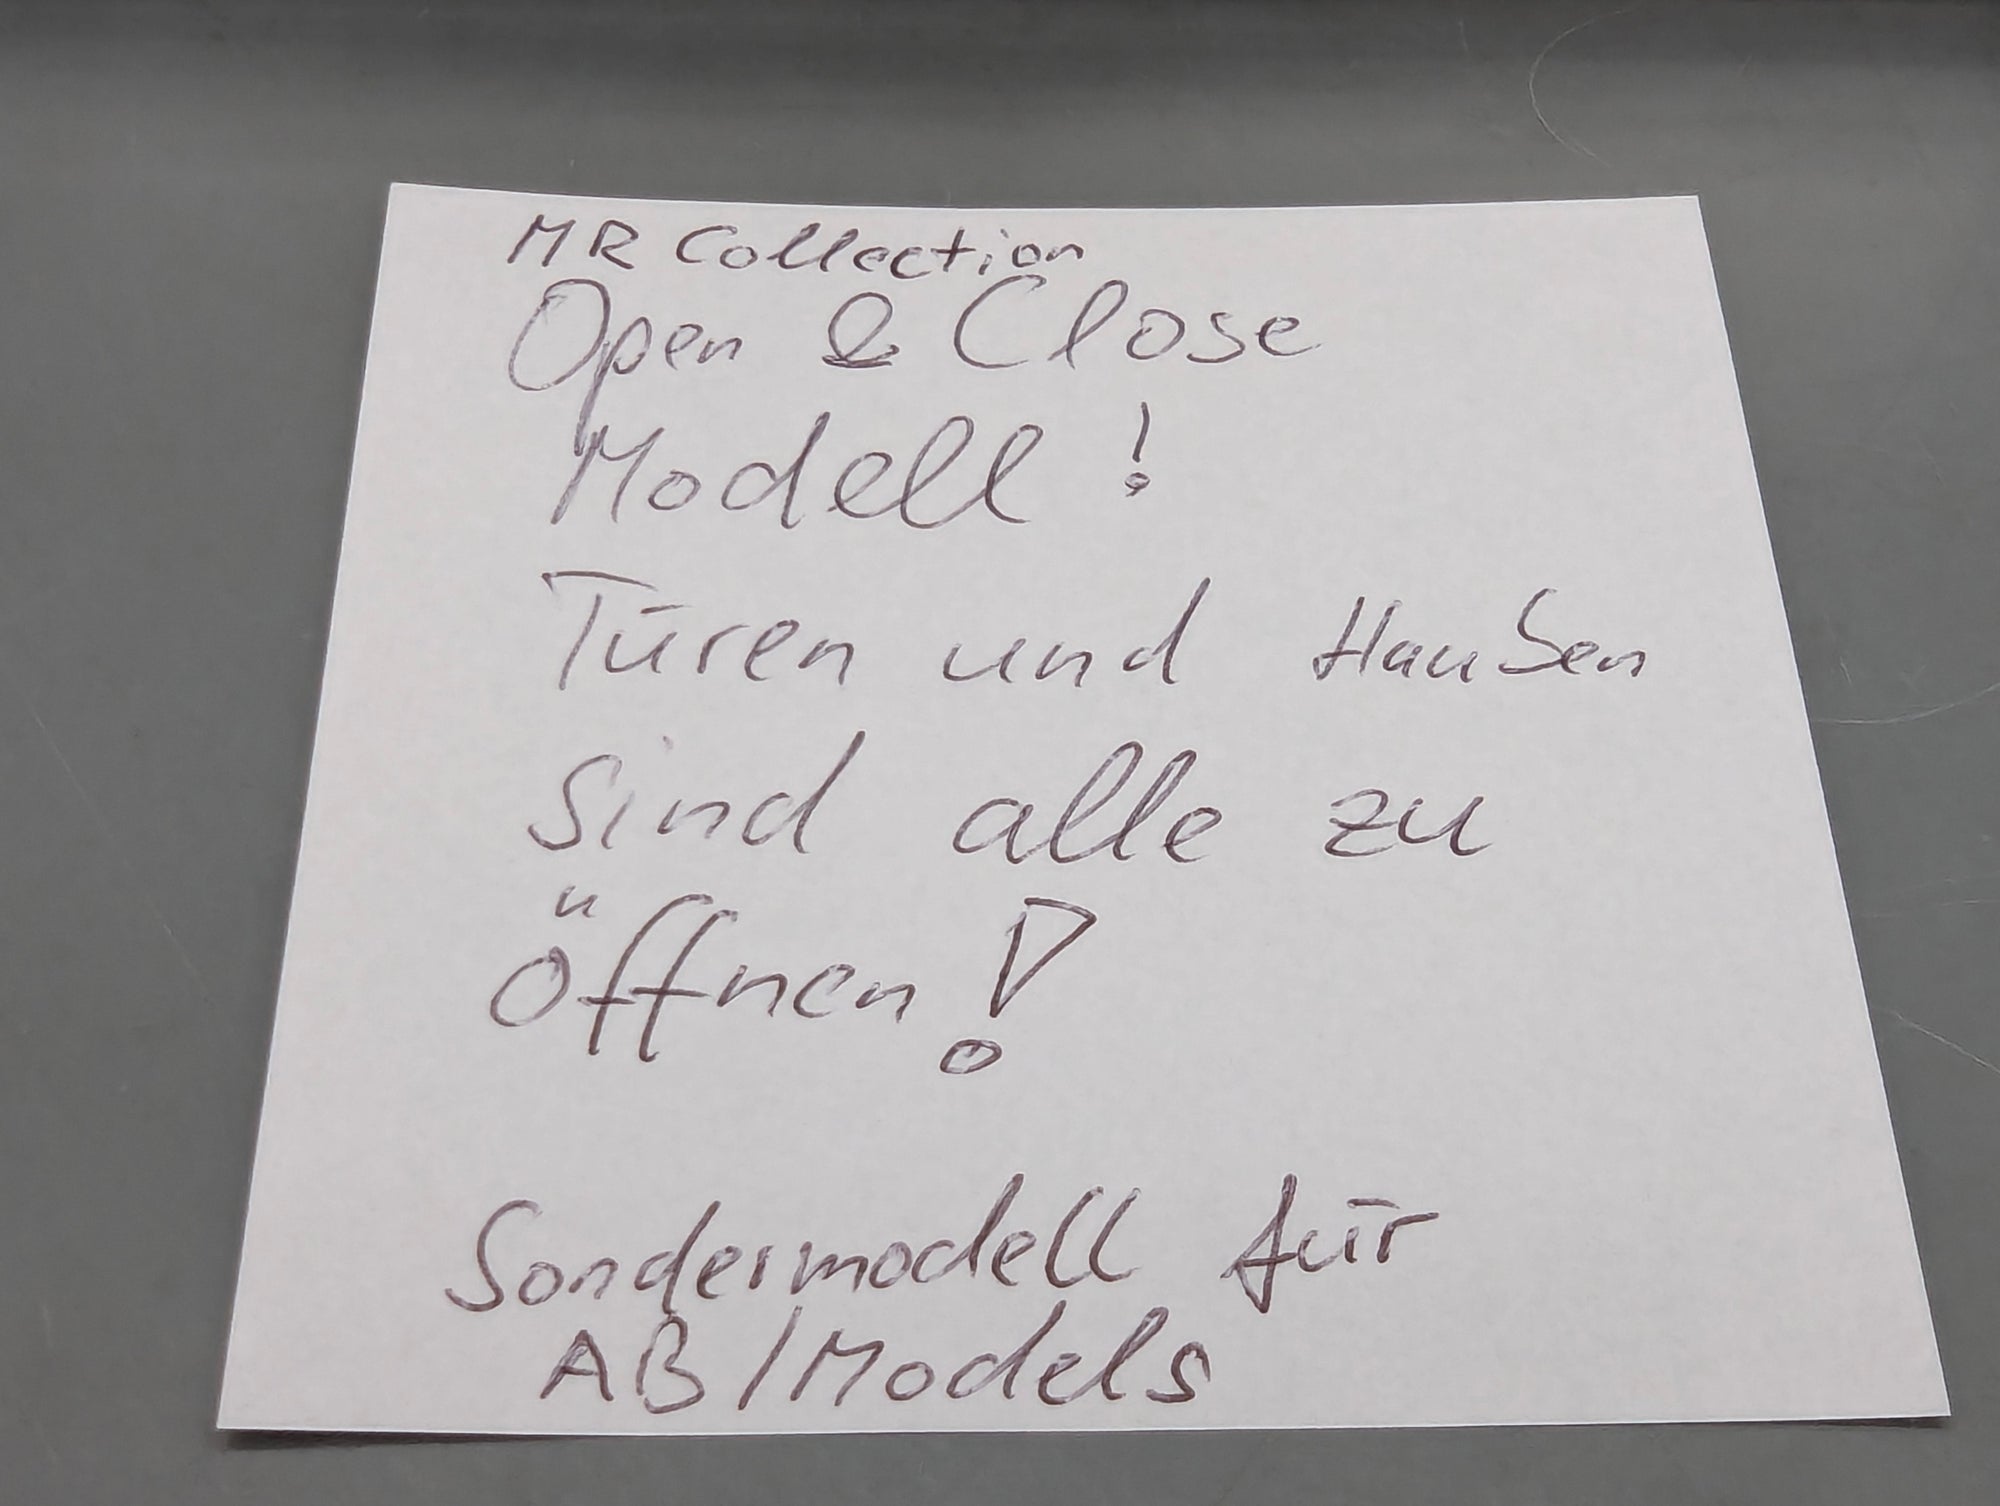 MR Collection
Open & Close
Modell!
Türen und Hauben
sind alle zu
öffnen!
Sondermodell für
AB/Models